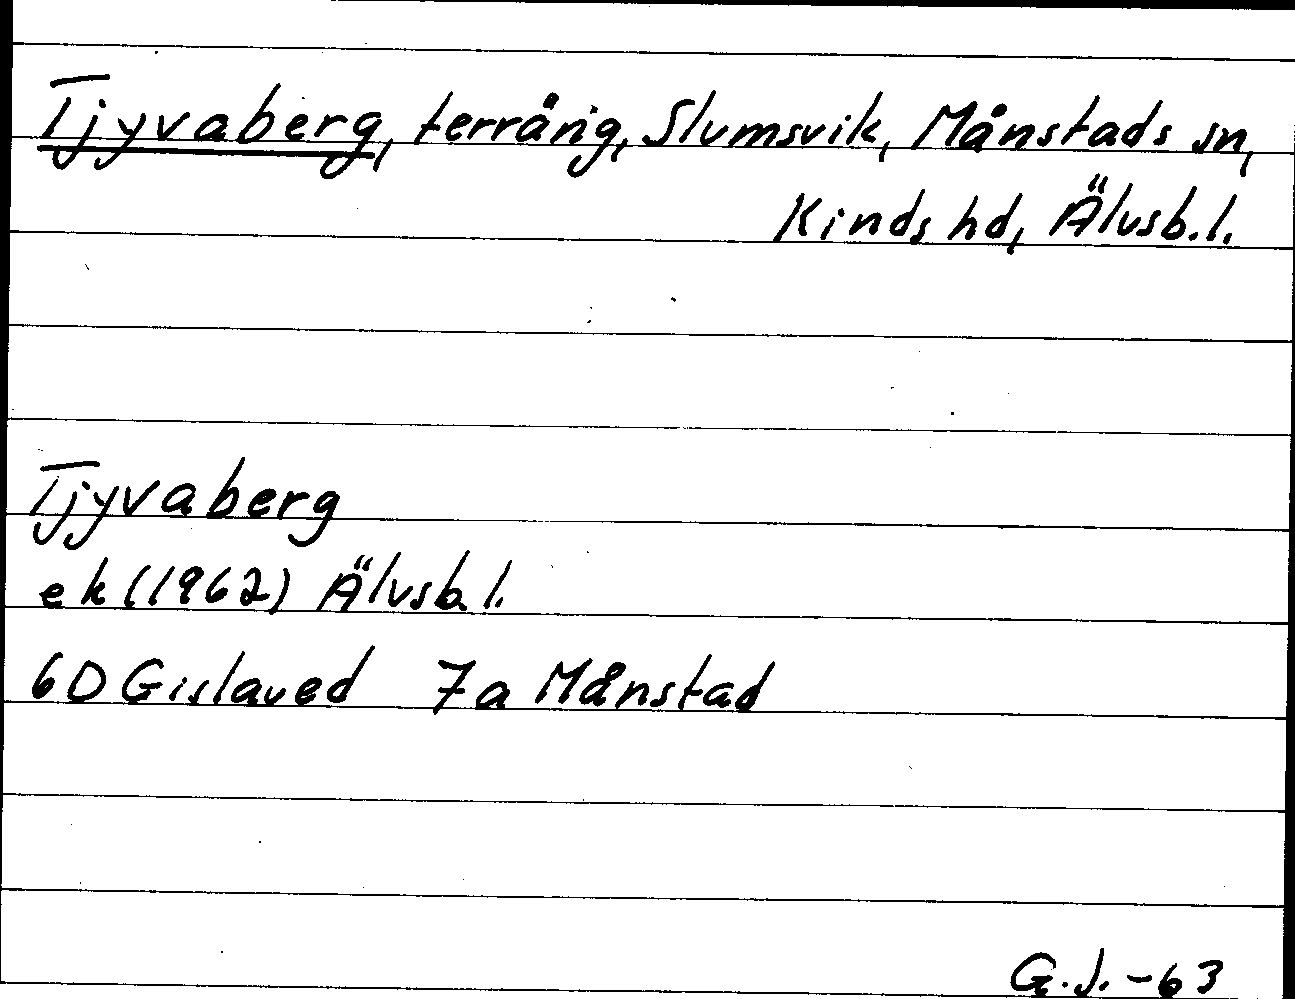 Tjyvaberg, terräng, Slumsvik, Månstads sn,
Kinds hd, Älvsb. l.
Tjyvaberg
ek (1962) Älvsb. l.
6D Gislaved 7a Månstad
G.J. -63